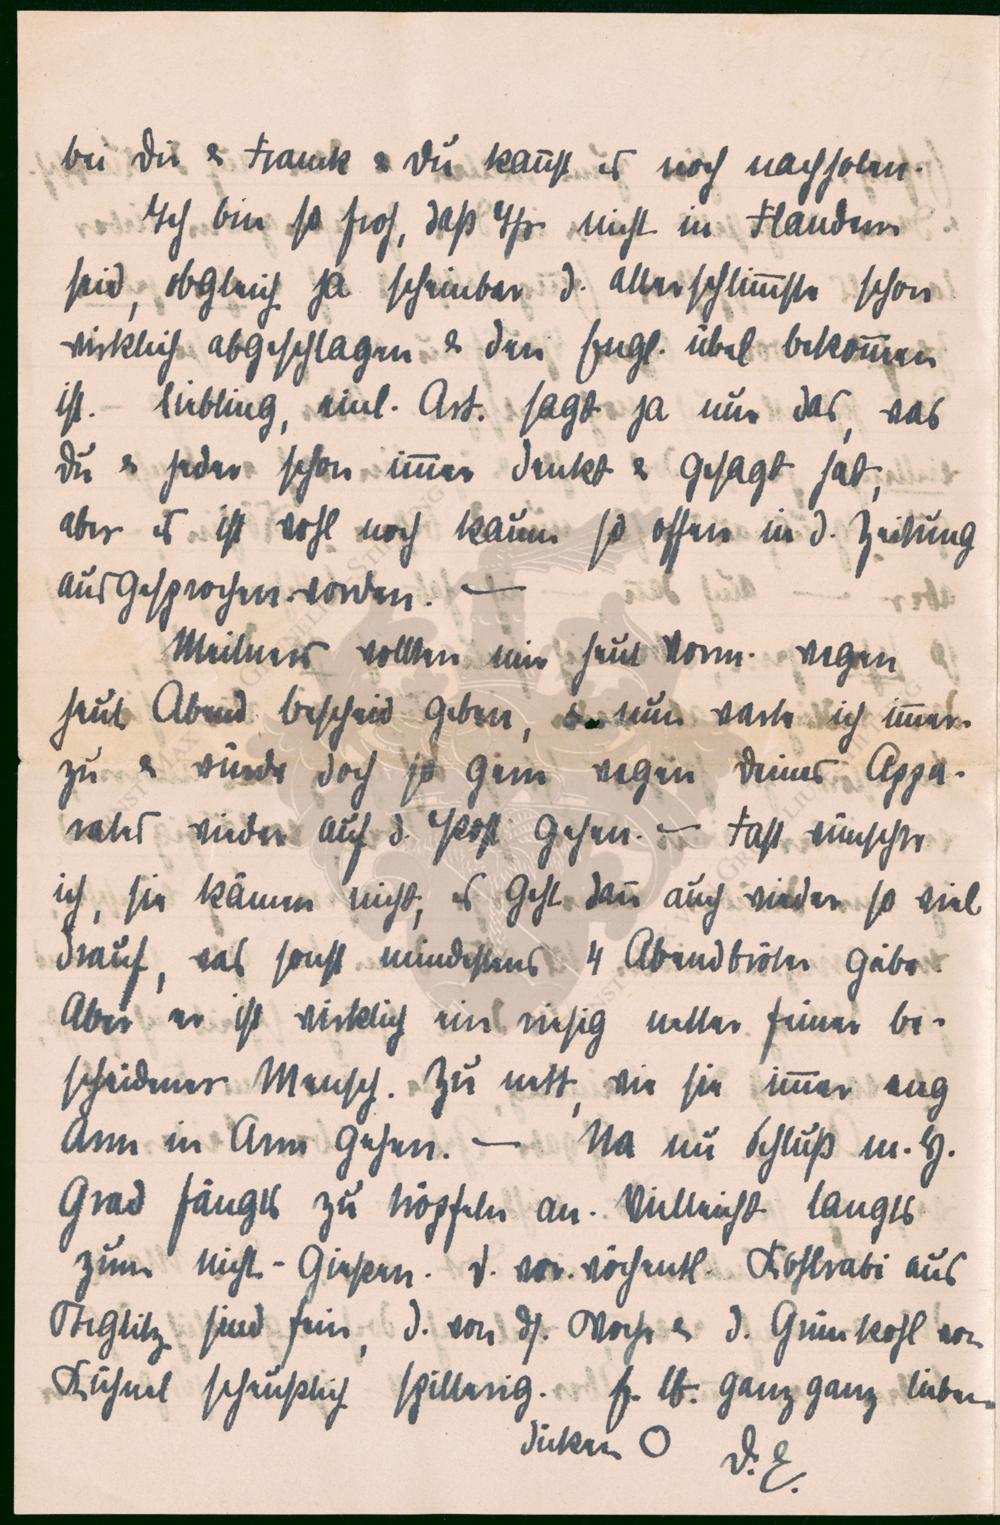 bei Dir & Franck & Du kannst es noch nachholen.
Ich bin so froh, daß Ihr nicht in Flandern
seid, obgleich ja scheinbar d. allerschlim̅ste schon
wirklich abgeschlagen & den Engl. übel bekom̅en
ist. – Liebling, einl. Art. sagt ja nur das, was
Du & jeder schon im̅er denkt & gesagt hat,
aber es ist wohl noch kaum so offen in d. Zeitung
ausgesprochen worden. —
Meitners wollten mir heut Vorm. wegen
heut Abend bescheid geben, nun warte ich im̅er
zu & würde doch so gern wegen Deines Appa-
rates wieder auf d. Post gehen. — Fast wünschte
ich, sie kämen nicht, es geht dan̅ auch wieder so viel
drauf, was sonst mindestens 4 Abendbröte gäbe.
Aber er ist wirklich ein riesig netter feiner be-
scheidener Mensch. Zu nett, wie sie im̅er eng
Arm in Arm gehen. — Na nu Schluß m. H.
Grad fängts zu tröpfeln an. Vielleicht langts
zum nicht-Gießen. d. vor.wöchentl. Kohlrabi aus
Steglitz sind fein, d. von ds. Woche & d. Grünkohl von
Kühnel scheußlich spillerig. ganz ganz lieben
dicken O D. E.